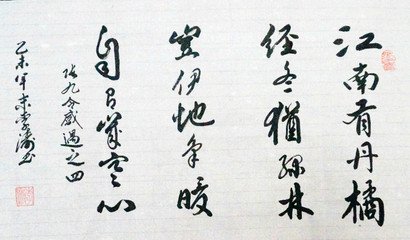 江南有丹橘
经冬犹绿林
岂伊地气暖
自有岁寒心
张九龄感遇之四
乙未年